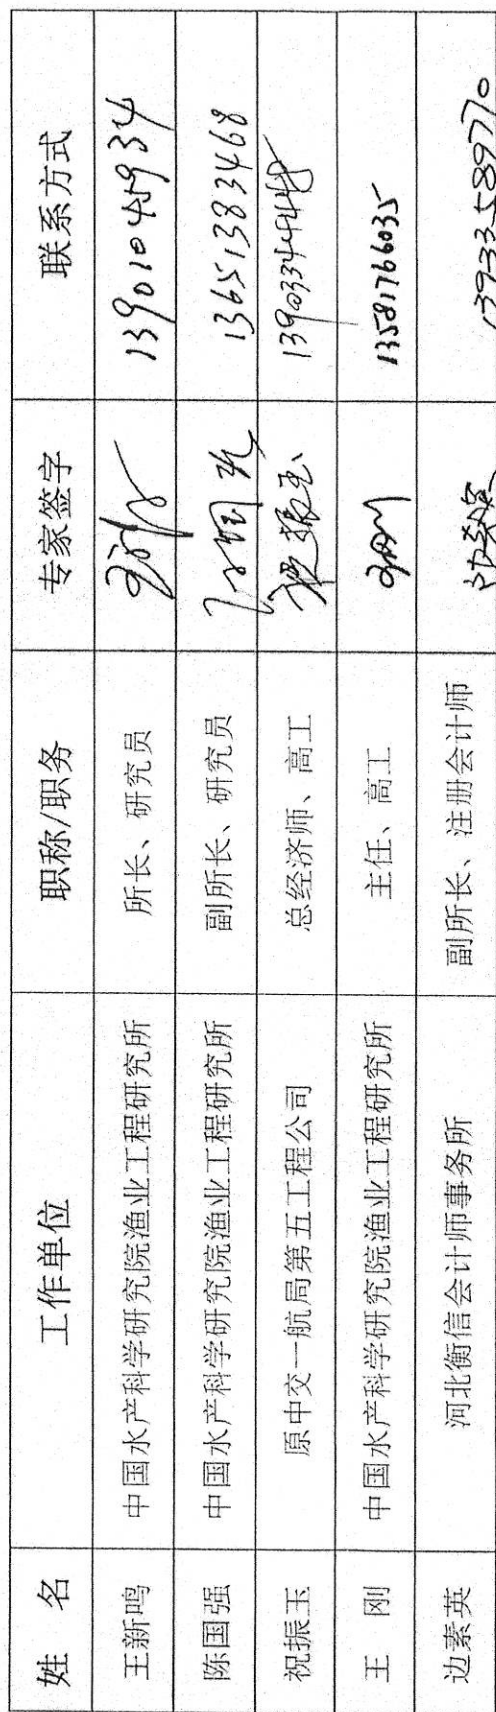 姓 名 工作单位 职称/职务 专家签字 联系方式
王新鸣 中国水产科学研究院渔业工程研究所 所长、研究员
陈国强 中国水产科学研究院渔业工程研究所 副所长、研究员 13651383468
祝振玉 原中交一航局第五工程公司 总经济师、高工 祝振玉
王 刚 中国水产科学研究院渔业工程研究所 主任、高工 13581766035
边素英 河北衡信会计师事务所 副所长、注册会计师 13933589770